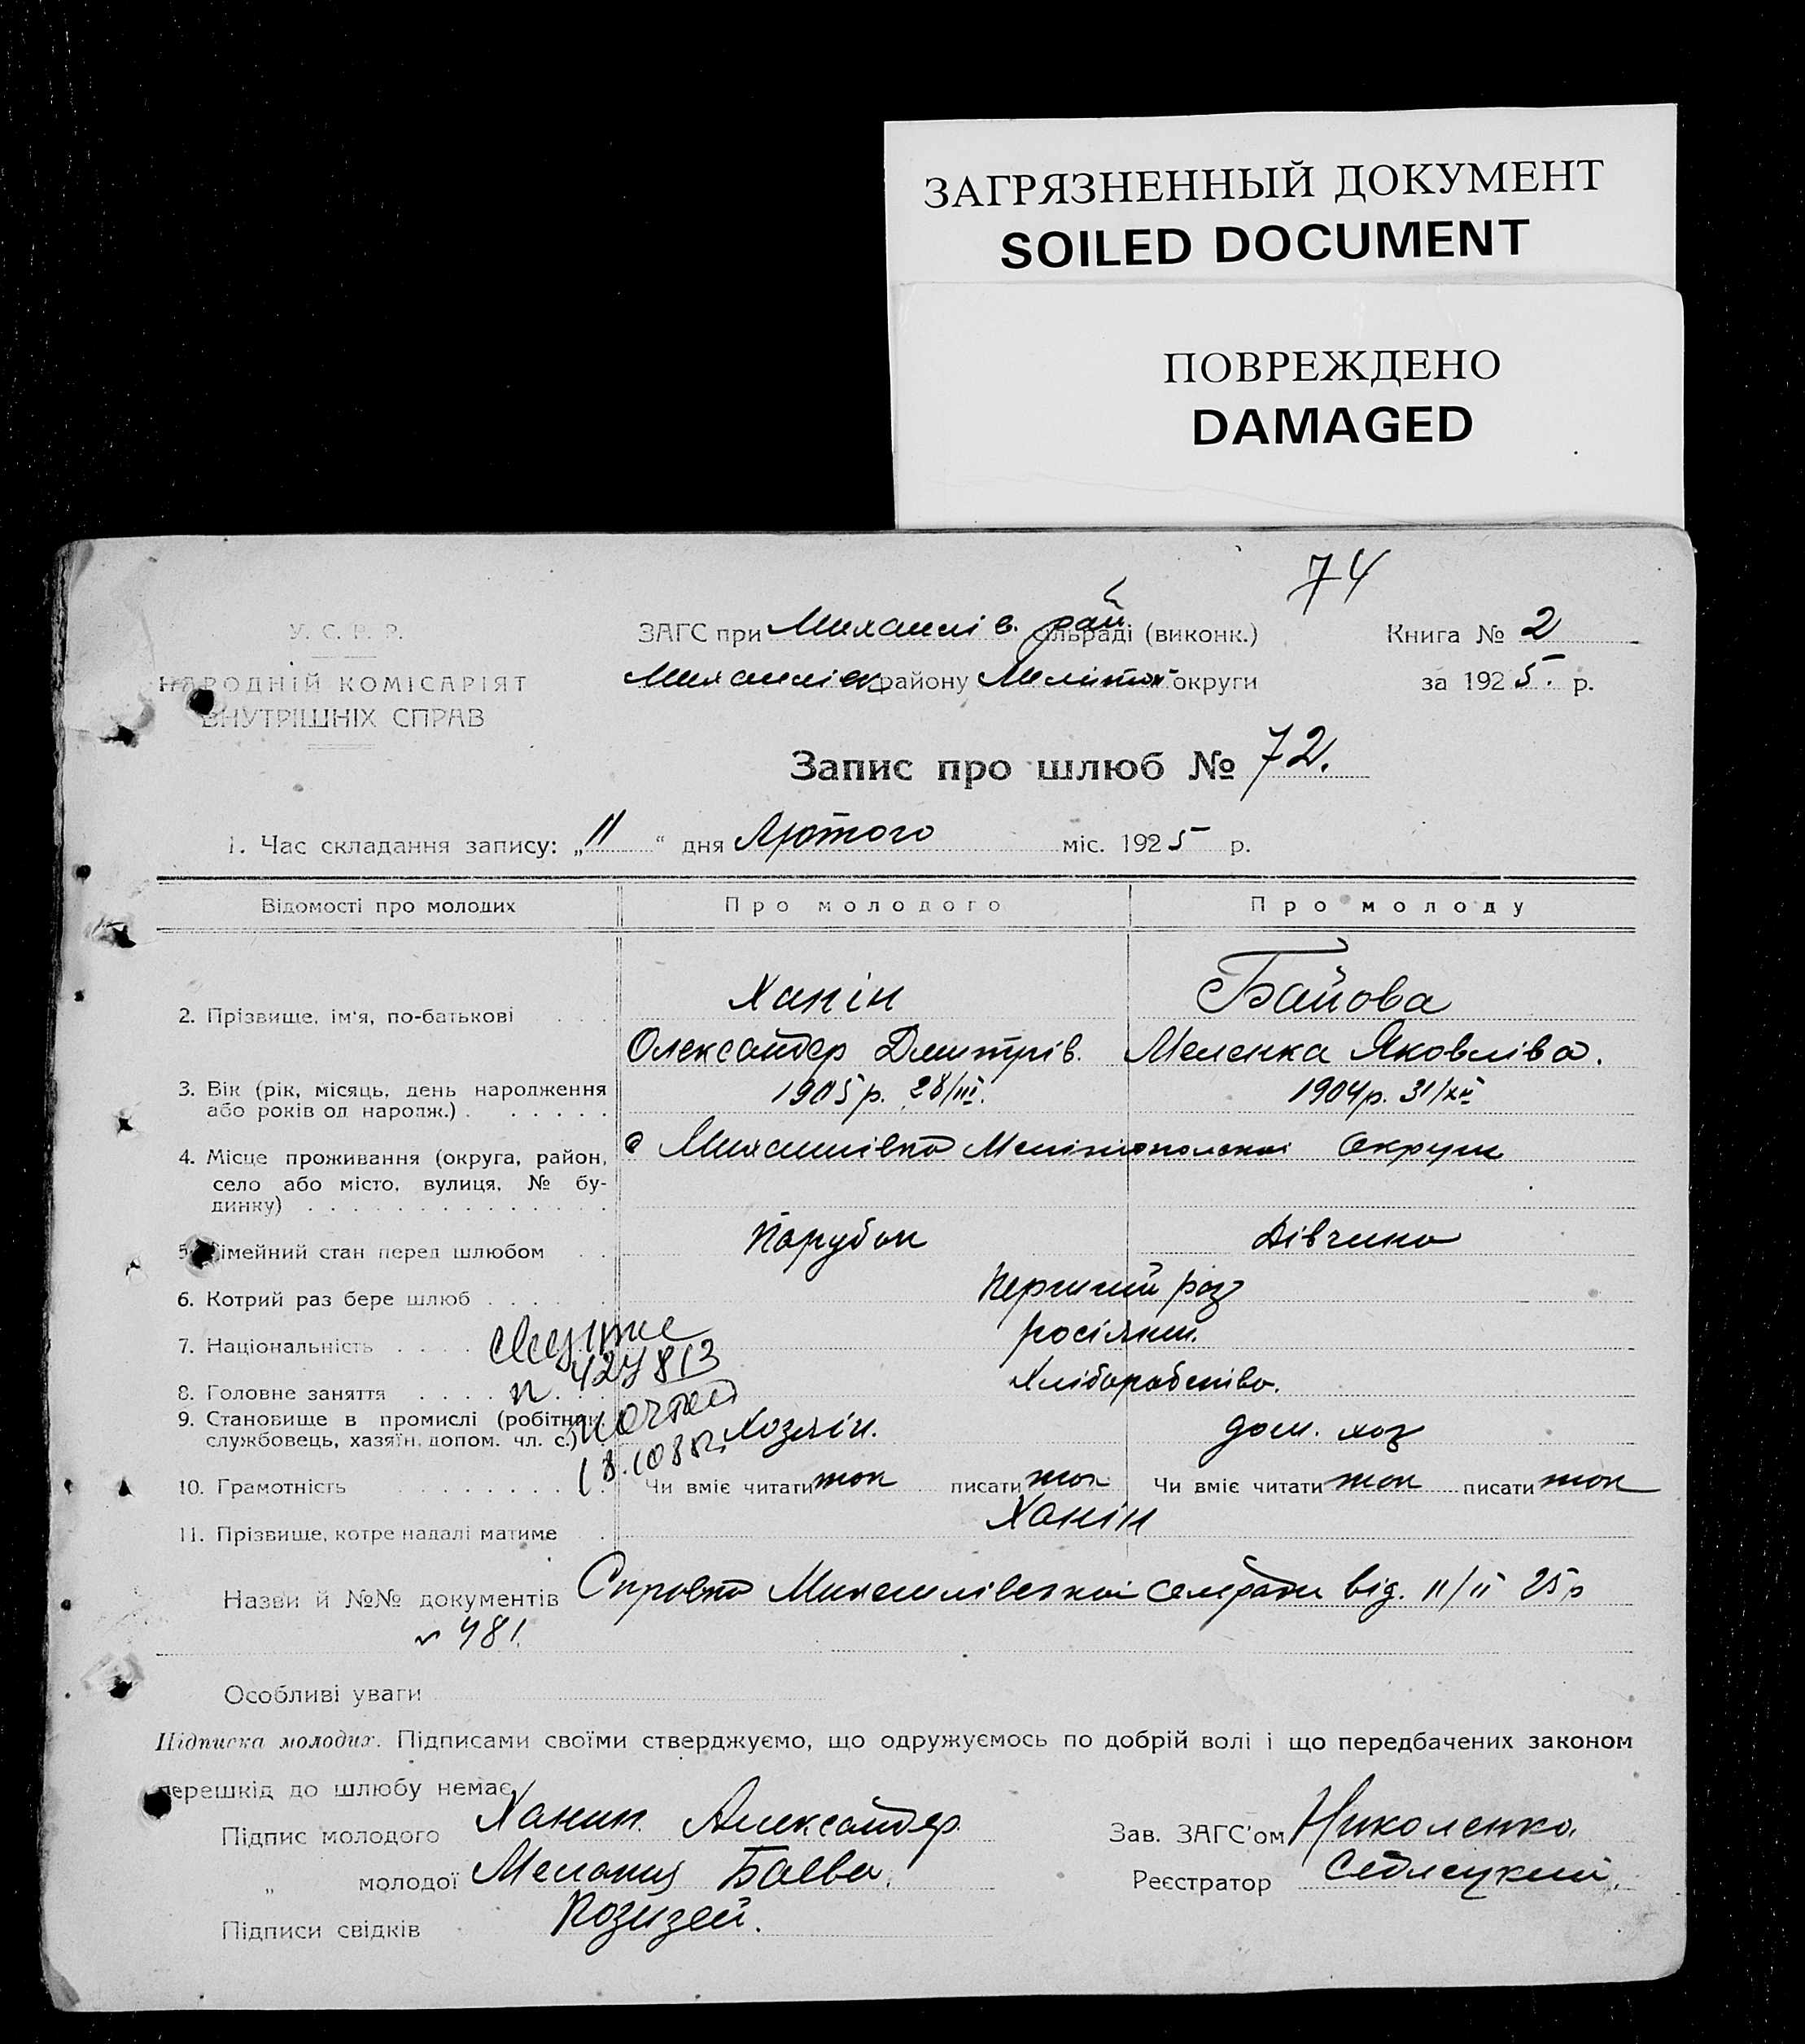 ЗАГРЯЗНЕННЫЙ ДОКУМЕНТ
SOILED DOCUMENT
ПОВРЕЖДЕНО
DAMAGED
74
У. С. Р. Р.
НАРОДНІЙ КОМІСАРІЯТ
ВНУТРІШНІХ СПРАВ
ЗАГС при Михайлів. рай. сільраді (виконк.)
Михайлівск району Меліtoп округи
Книга № 2
за 1925. р.
Запис про шлюб № 72.
1. Час складання запису: „11“ дня Лютого міс. 1925 р.
Відомості про молодих Про молодого Про молоду
2. Прізвище, ім'я, по-батькові . . . Ханін Байова
Олександер Дмитрів. Меленка Яковлівa.
3. Вік (рік, місяць, день народження 1905 р. 28/III. 1904 р. 31/XII
або років од народж.) . . . . . .
4. Місце проживання (округа, район, с Михайлівка Мелітопольскої Округи
село або місто, вулиця, № бу-
динку) . . . . . . . . . . . . . .
5. Сімейний стан перед шлюбом . . Парубок Дівчина
6. Котрий раз бере шлюб . . . . . . Перший раз
7. Національність . . . . росіяни.
427813
8. Головне заняття . . . . Хліборобство.
9. Становище в промислі (робітник,
службовець, хазяїн, допом. чл. с.) Хозяін. дом. хоз
10. Грамотність . . . . . . . . . Чи вміє читати так писати так Чи вміє читати так писати так
11. Прізвище, котре надалі матиме . Ханін
Назви й №№ документів Справка Михайлівської сельради від. 11/II 25 р
№ 481.
Особливі уваги
Підписка молодих. Підписами своїми стверджуємо, що одружуємось по добрій волі і що передбачених законом
перешкід до шлюбу немає.
Підпис молодого Ханин Александер.
Зав. ЗАГС'ом Николенко.
„ молодої Мелания Баева.
Реєстратор Седлецкий.
Підписи свідків Козизей.